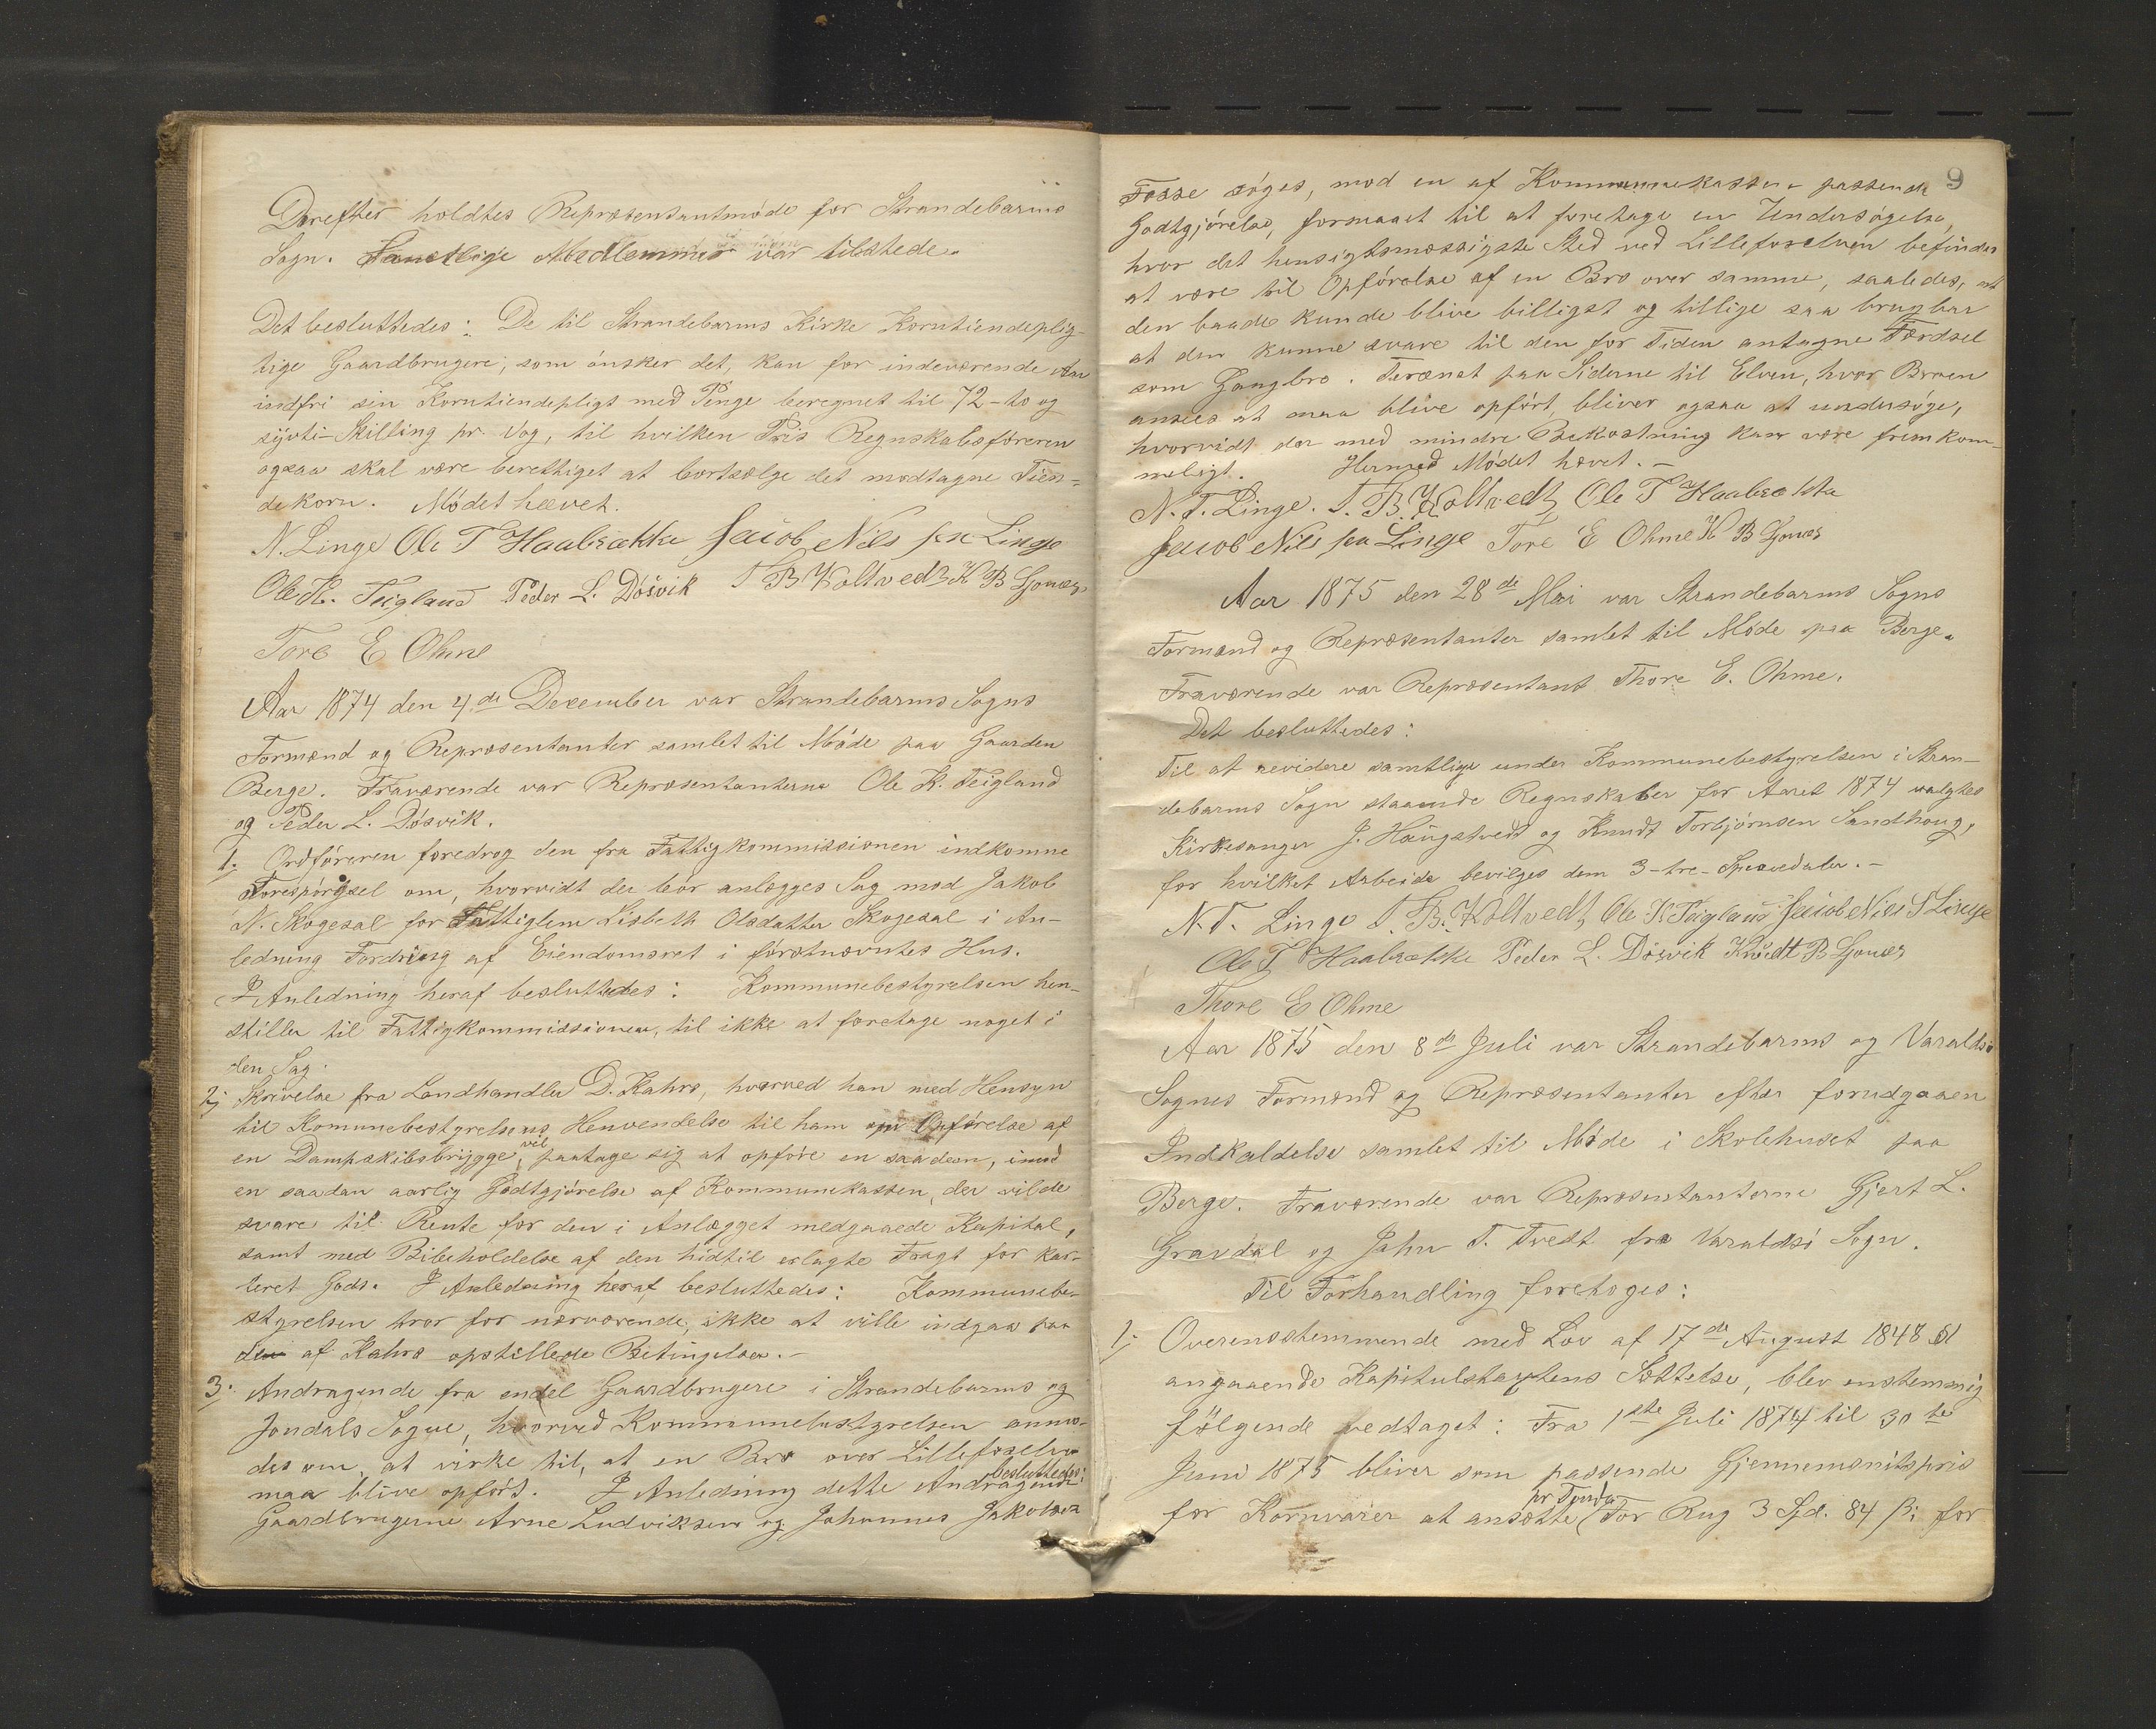 Derefter holdtes Repræsentantmøde for Strandebarms
Sogn. Samtlige Medlemmer var tilstede.
Det besluttedes: De til Strandebarms Kirke Korntiendeplig-
tige Gaardbrugere, som ønsker det, kan for indeværende Aar
indfri sin Korntiendepligt med Penge beregnet til 72 - to og
sÿvti - Skilling pr. Vog, til hvilken Pris Regnskabsføreren
ogsaa skal være berettiget at bortsælge det modtagne Tien=
dekorn. Mødet hævet.
N. Linge Ole T Haabrække Jacob Nils sen Linge
Ole K. Teigland Peder L. Døsvik T B Woltvedt K B Ljones
Tore E Ohme
Aar 1874 den 4de December var Strandebarms Sogns
Formænd og Repræsentanter samlet til Møde paa Gaarden
Berge. Fraværende var Repræsentanterne Ole K. Teigland
og Peder L. Døsvik.
1; Ordføreren foredrog den fra Fattigkommissionen indkomne
Forespørgsel om, hvorvidt der bør anlægges Sag mod Jakob
N. Skogesal for Fattiglem Lisbeth Olsdatter Skogesal i An-
ledning Fordring af Eiendomsret i førstnævntes Hus.
I Anledning heraf besluttedes: Kommunebestyrelsen hen-
stiller til Fattigkommissionen, til ikke at foretage noget i
den Sag.
2; Skrivelse fra Landhandler D. Kahrs, hvorved han med Hensyn
til Komunebestyrelsens Henvendelse til ham om Opførelse af
en Dampskibsbrygge, vil paatage sig at opføre en saadan, imod
en saadan aarlig Godtgjørelse af Kommunekassen, der vilde
svare til Rente for den i Anlægget medgaaede Kapital,
samt med Bibeholdelse af den hidtil erlagte Fragt for kar-
teret Gods. I Anledning heraf besluttedes: Kommunebe-
styrelsen tror for nærværende, ikke at ville indgaa paa
den af Kahrs opstillede Betingelser. -
3; Andragende fra endel Gaardbrugere i Strandebarms og
Jondals Sogne, hvorved Kommunebestyrelsen anmo-
des om, at virke til, at en Bro over Lillefoselven
maa blive opført. I Anledning dette Andragende besluttedes:
Gaardbrugerne Arne Ludviksen og Johannes Jakobsen
9
Fosse søges, mod en af Kommunekassen passende
Godtgjørelse, formaaet til at foretage en Undersøgelse,
hvor det hensigtsmæssigste Sted ved Lillefoselven befindes
at være til Opførelse af en Bro over samme, saaledes, at
den baade kunde blive billigst og tillige saa brugbar
at den kunne svare til den for Tiden antagne Færdsel
som Gangbro. Terænet paa Siderne til Elven, hvor Broen
ansees at maa blive opført, bliver ogsaa at undersøge,
hvorvidt der med mindre Bekostning kan være fremkom-
meligt. Hermed Mødet hævet. -
N. T. Linge. T. B. Woltvedt Ole T Haabrække
Jacob Nils sen Linge Tore E Ohme K B Ljones
Aar 1875 den 28de Mai var Strandebarms Sogns
Formænd og Repræsentanter samlet til Møde paa Berge.
Fraværende var Repræsentant Thore E. Ohme.
Det besluttedes:
Til at revidere samtlige under Kommunebestyrelsen i Stran-
debarms Sogn staaende Regnskaber for Aaret 1874 valgtes
Kirkesanger J. Haugstvedt og Knudt Torbjørnsen Sandhoug,
for hvilket Arbeide bevilges dem 3 - tre - Speciedaler. -
N. T. Linge T. B. Woltvedt, Ole K Teigland Jacob Nils S Linge
Ole T Haabrække Peder L. Døsvik Knudt B Ljones
Thore E Ohme
Aar 1875 den 8de Juli var Strandebarms og Varaldsø
Sognes Formænd og Repræsentanter efter forudgaaen
Indkaldelse samlet til Møde i Skolehuset paa
Berge. Fraværende var Repræsentanterne Gjert L.
Gravdal og Jahn T. Tvedt fra Varaldsø Sogn.
Til Forhandling foretoges:
1; Overensstemmende med Lov af 17de August 1848 §1
angaaende Kapitulstaxtens Sættelse, blev enstemmig
følgende vedtaget: Fra 1ste Juli 1874 til 30te
Juni 1875 bliver som passende Gjennemsnitspris
for Kornvarer at ansætte pr Tønde (For Rug 3 Spd. 84 ß; for